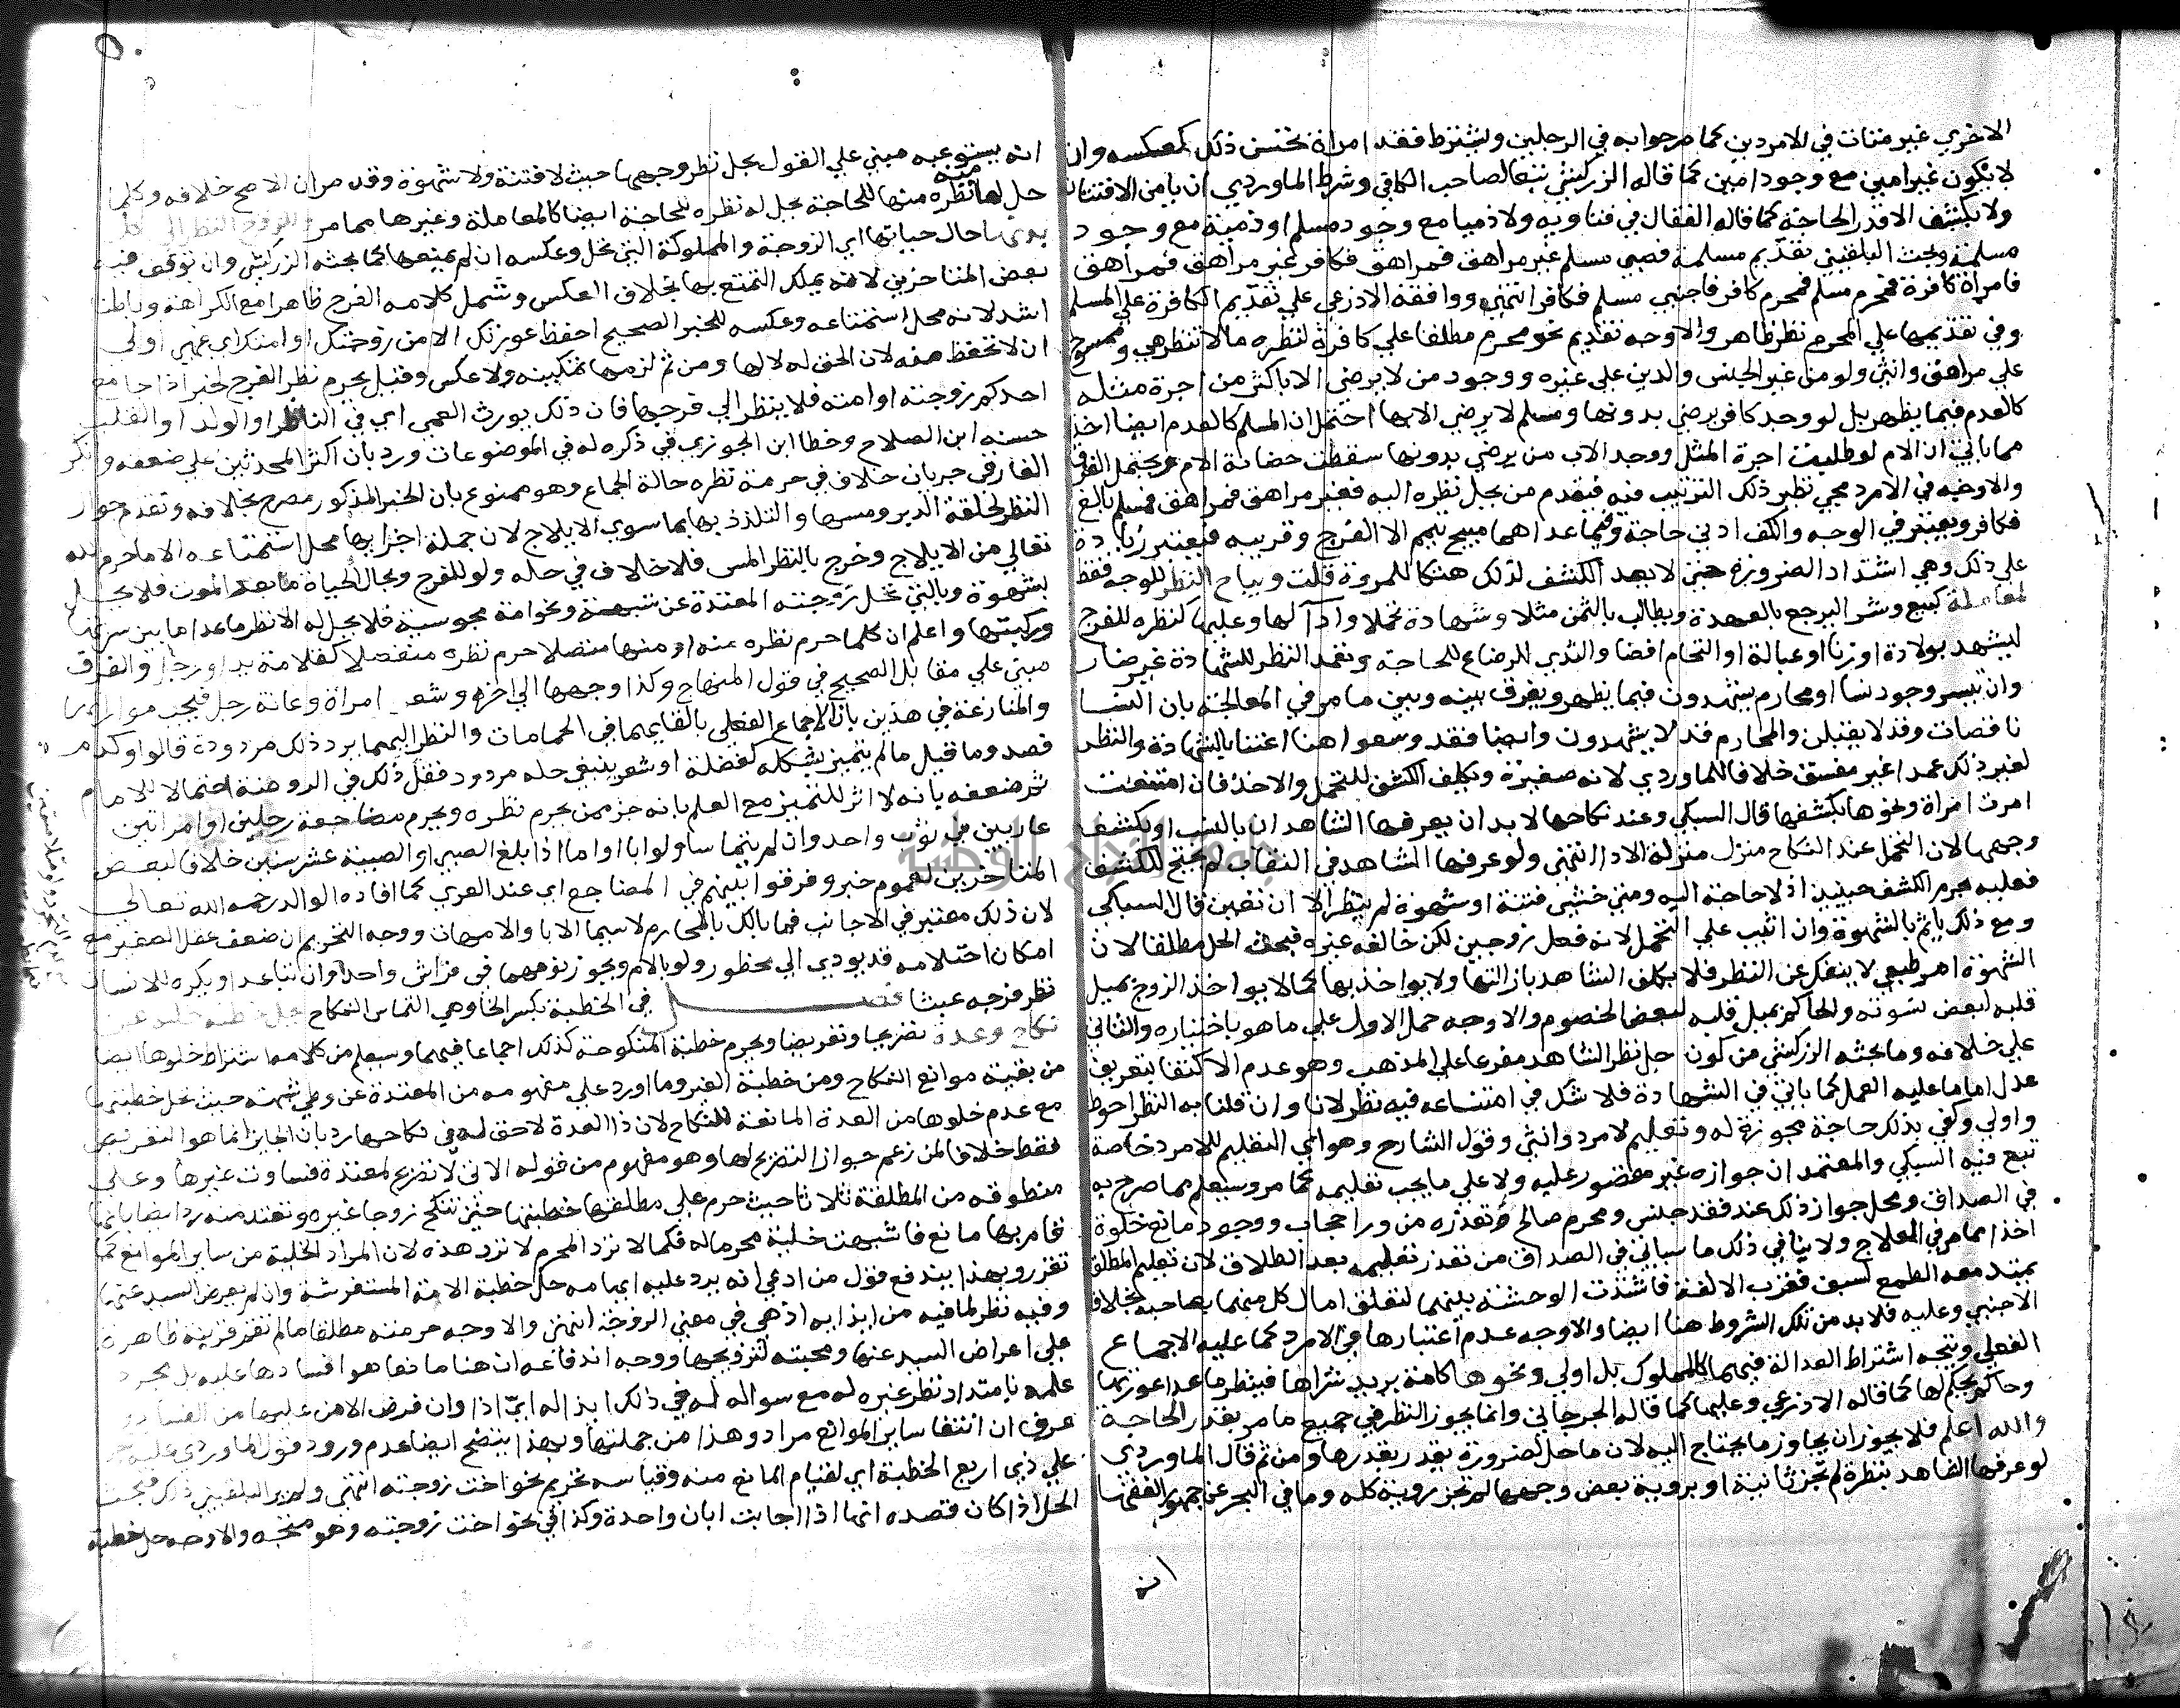 الاخري غير متات في الامردين كما مر جوابه في الرجلين ويشترط فقد امراة تحسن ذلك كعكسه وان
لا يكون غير امين مع وجود امين كما قاله الزركشي تبعا لصاحب الكافي وشرط الماوردي ان يامن الافتتان
ولا يكشف الا قدر الحاجة كما قاله القفال في فتاويه ولا ذميا مع وجود مسلم او ذمية مع وجود
مسلمة وبحث البلقيني تقديم مسلمة فصبي مسلم غير مراهق فمراهق فكافر غير مراهق فمراهق
فامراة كافرة فمحرم مسلم فمحرم كافر فاجنبي مسلم فكافر انتهى ووافقه الاذرعي على تقديم الكافرة علي المسلم
وفي تقديمها علي المحرم نظر ظاهر والاوجه تقديم نحو محرم مطلقا علي كافرة لنظره ما لا تنظر هي وممسوح
علي مراهق وانثي ولو من غير الجنس والدين علي غيره ووجود من لا يرضي الا باكثر من اجرة مثله
كالعدم فيما يظهر بل لو وجد كافر يرضي بدونها ومسلم لا يرضي الا بها احتمل ان المسلم كالعدم ايضا اخذا
مما ياتي ان الام لو طلبت اجرة المثل ووجد الاب من يرضي بدونها سقطت حضانة الام ويحتمل الفرق
والاوجه في الامرد مجي نظير ذلك الترتيب فيه فيقدم من يحل نظره اليه فغير مراهق فمراهق فمسلم بالغ
فكافر ويعتبر في الوجه والكف ادني حاجة وفيما عداهما مبيح تيمم الا الفرج وقريبه فيعتبر زيادة
علي ذلك وهي اشتداد الضرورة حتي لا يعد الكشف لذلك هتكا للمروة قلت ويباح النظر للوجه فقط
لمعاملة كبيع وشرا ليرجع بالعهدة ويطالب بالثمن مثلا وشهادة تحملا وادا لها وعليها كنظره للفرج
ليشهد بولادة او زنا او عبالة او التحام افضا والثدي للرضاع للحاجة وتعمد النظر للشهادة غير ضار
وان تيسر وجود نسا او محارم يشهدون فيما يظهر ويفرق بينه وبين ما مر في المعالجة بان النسا
ناقصات وقد لا يقبلن والمحارم قد لا يشهدون وايضا فقد وسعوا هنا اعتنا بالشهادة والنظر
لغير ذلك عمدا غير مفسق خلافا للماوردي لانه صغيرة وتكلف الكشف للتحمل والاخذ فان امتنعت
امرت امراة ونحوها بكشفها قال السبكي وعند نكاحها لا بد ان يعرفها الشاهدان بالنسب او يكشف
وجهها لان التحمل عند النكاح منزل منزلة الادا انتهى ولو عرفها الشاهد في النقاب لم يحتج للكشف
فعليه يحرم الكشف حينيذ اذ لا حاجة اليه ومتي خشي فتنة او شهوة لم ينظر الا ان تعين قال السبكي
ومع ذلك ياثم بالشهوة وان اثيب علي التحمل لانه فعل ذو وجهين لكن خالفه غيره فبحث الحل مطلقا لان
الشهوة امر طبيعي لا ينفك عن النظر فلا يكلف الشاهد بازالتها ولا يواخذ بها كما لا يواخذ الزوج بميل
قلبه لبعض نسوته والحاكم بميل قلبه لبعض الخصوم والاوجه حمل الاول علي ما هو باختياره والثاني
علي خلافه وما بحثه الزركشي من كون حل نظر الشاهد مفرعا علي المذهب وهو عدم الاكتفا بتعريف
عدل اما ما عليه العمل كما ياتي في الشهادة فلا شك في امتناعه فيه نظر لانا وان قلنا به النظر احوط
واولي وكفي بذلك حاجة مجوزة له وتعليم لامرد وانثي وقول الشارح وهو اي التعليم للامرد خاصة
تبع فيه السبكي والمعتمد ان جوازه غير مقصور عليه ولا علي ما يجب تعليمه كما مر وسيعلم مما صرح به
في الصداق ومحل جواز ذلك عند فقد جنس ومحرم صالح وتعذره من ورا حجاب ووجود مانع خلوة
اخذا مما مر في العلاج ولا ينافي ذلك ما سياتي في الصداق من تعذر تعليمه بعد الطلاق لان تعليم المطلق
يمتد معه الطمع لسبق مقرب الالفة فاشتدت الوحشة بينهما لتعلق امال كل منهما بصاحبه بخلاف
الاجنبي وعليه فلا بد من تلك الشروط هنا ايضا والاوجه عدم اعتبارها في الامرد كما عليه الاجماع
الفعلي ويتجه اشتراط العدالة فيهما كالمملوك بل اولي ونحوها كامة يريد شراها فينظر ما عدا عورتها
وحاكم يحكم لها كما قاله الاذرعي وعليها كما قاله الجرجاني وانما يجوز النظر في جميع ما مر بقدر الحاجة
والله اعلم فلا يجوز ان يجاوز ما يحتاج اليه لان ما حل لضرورة يقدر بقدرها ومن ثم قال الماوردي
لو عرفها الشاهد بنظرة لم تجز ثانية او بروية بعض وجهها لم تجز روية كله وما في البحر عن جمهور الفقها
انه
انه يستوعبه مبني علي القول بحل نظر وجهها حيث لا فتنة ولا شهوة وقد مر ان الاصح خلافه وكلما
حل لها نظره منه للحاجة يحل له نظره منها للحاجة ايضا كالمعاملة وغيرها مما مر وللزوج النظر الي كل
بدنها حال حياتها اي الزوجة والمملوكة التي تحل وعكسه ان لم يمنعها كما بحثه الزركشي وان توقف فيه
بعض المتاخرين لانه يملك التمتع بها بخلاف العكس وشمل كلامه الفرج ظاهرا مع الكراهة وباطنا
اشد لانه محل استمتاعه وعكسه للخبر الصحيح احفظ عورتك الا من زوجتك او امتك اي فهي اولي
ان لا تحفظ منه لان الحق له لا لها ومن ثم لزمها تمكينه ولا عكس وقيل يحرم نظر الفرج لخبر اذا جامع
احدكم زوجته او امته فلا ينظر الي فرجها فان ذلك يورث العمي اي في الناظر او الولد او القلب
حسنه ابن الصلاح وخطا ابن الجوزي في ذكره له في الموضوعات ورد بان اكثر المحدثين علي ضعفه وانكر
الفارقي جريان خلاف في حرمة نظره حالة الجماع وهو ممنوع بان الخبر المذكور مصرح بخلافه وتقدم جواز
النظر لحلقة الدبر ومسها والتلذذ بها بما سوي الايلاج لان جملة اجزايها محل استمتاعه الا ما حرم الله
تعالي من الايلاج وخرج بالنظر المس فلا خلاف في حله ولو للفرج وبحال الحياة ما بعد الموت فلا يحل
بشهوة وبالتي تحل زوجته المعتدة عن شبهة ونحو امة مجوسية فلا يحل له الا نظر ما عدا ما بين سرتها
وركبتها واعلم ان كلما حرم نظره منه او منها متصلا حرم نظره منفصلا كقلامة يد او رجل والفرق
مبني علي مقابل الصحيح في قول المنهاج وكذا وجهها الي اخره وشعر امراة وعانة رجل فيجب مواراتها
والمنازعة في هذين بان الاجماع الفعلي بالقايهما في الحمامات والنظر اليهما يرد ذلك مردودة قالوا وكدم
فصد وما قيل ما لم يتميز بشكله كفضلة او شعر ينبغي حله مردود فقل ذلك في الروضة احتمالا للامام
ثم ضعفه بانه لا اثر للتميز مع العلم بانه جز ممن يحرم نظره ويحرم مضاجعة رجلين او امراتين
عاريين في ثوب واحد وان لم يتماسا ولو ابا او اما اذا بلغ الصبي او الصبية عشر سنين خلافا لبعض
المتاخرين لعموم خبر وفرقوا بينهم في المضاجع اي عند العري كما افاده الوالد رحمه الله تعالي
لان ذلك معتبر في الاجانب فما بالك بالمحارم لا سيما الابا والامهات ووجه التحريم ان ضعف عقل الصغير مع
امكان احتلامه قد يودي الي محظور ولو بالام ويجوز نومهما في فراش واحد وان تباعدا ويكره للانسان
نظر فرجه عبثا فصل في الخطبة بكسر الخا وهي التماس النكاح
نكاح وعدة تصريحا وتعريضا ويحرم خطبة المنكوحة كذلك اجماعا فيهما وسيعلم من كلامه اشتراط خلوها ايضا
من بقية موانع النكاح ومن خطبة الغير وما اورد علي مفهومه من المعتدة عن وطي شبهة حيث تحل خطبتها
مع عدم خلوها من العدة المانعة للنكاح لان ذا العدة لا حق له في نكاحها رد بان الجايز انما هو التعريض
فقط خلافا لمن زعم جواز التصريح لها وهو مفهوم من قوله الاتي لا تصريح لمعتدة فساوت غيرها وعلي
منطوقه من المطلقة ثلاثا حيث حرم علي مطلقها خطبتها حتي تنكح زوجا غيره وتعتد منه رد ايضا بانها
قام بها مانع فاشبهت خلية محرما له فكما لا ترد المحرم لا ترد هذه لان المراد الخلية من ساير الموانع كما
تقرر وبهذا يندفع قول من ادعي انه يرد عليه ايهامه حل خطبة الامة المستفرشة وان لم يعرض السيد عنها
وفيه نظر لما فيه من ايذايه اذ هي في معني الزوجة انتهى والاوجه حرمته مطلقا ما لم تقم قرينة ظاهرة
علي اعراض السيد عنها ومحبته لتزويجها ووجه اندفاعه ان هنا مانعا هو افسادها عليه بل مجرد
علمه بامتداد نظر غيره له مع سواله له في ذلك ايذا له اي ايذا وان فرض الامن عليها من الفساد
عرف ان انتفا ساير الموانع مراد وهذا من جملتها وبهذا يتضح ايضا عدم ورود قول الماوردي عليه
علي ذي اربع الخطبة اي لقيام المانع منه وقياسه تحريم نحو اخت زوجته انتهى ولم ير البلقيني ذلك فبحث
الحل اذا كان قصده انها اذا اجابت ابان واحدة وكذا في نحو اخت زوجته وهو متجه والاوجه حل خطبة